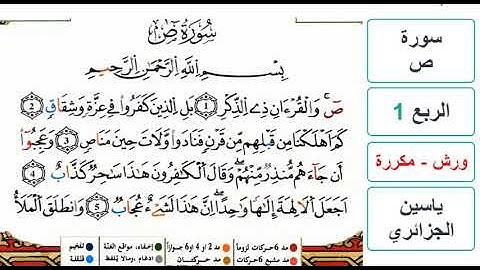 سُورَةُ صٓ
بِسْمِ اللَّهِ الرَّحْمَٰنِ الرَّحِيمِ
صٓ وَالْقُرْءَانِ ذِے الذِّكْرِ 1 بَلِ الذِينَ كَفَرُواْ فِے عِزَّةٖ وَشِقَاقٖ 2
كَمَ اَهْلَكْنَا مِن قَبْلِهِم مِّن قَرْنٖ فَنَادَواْ وَّلَاتَ حِينَ مَنَاصٖ 3 وَعَجِبُوٓاْ
أَن جَآءَهُم مُّنذِرٞ مِّنْهُمْ وَقَالَ الْكَٰفِرُونَ هَٰذَا سَٰحِرٞ كَذَّابٌ 4
اَجَعَلَ الَالِهَةَ إِلَٰهاٗ وَٰحِداًۖ اِنَّ هَٰذَا لَشَےْءٌ عُجَابٞ 5 وَانطَلَقَ الْمَلَأُ
مد 6 حركات لزوماً
مد 2 أو 4 أو 6 جوازاً
إخفاء، ومواقع الغنة
تفخيم
مد مشبع 6 حركات
مد حركتان
ادغام، ومالا يُلفظ
قلقلة
سورة
ص
الربع 1
ورش - مكررة
ياسين
الجزائري